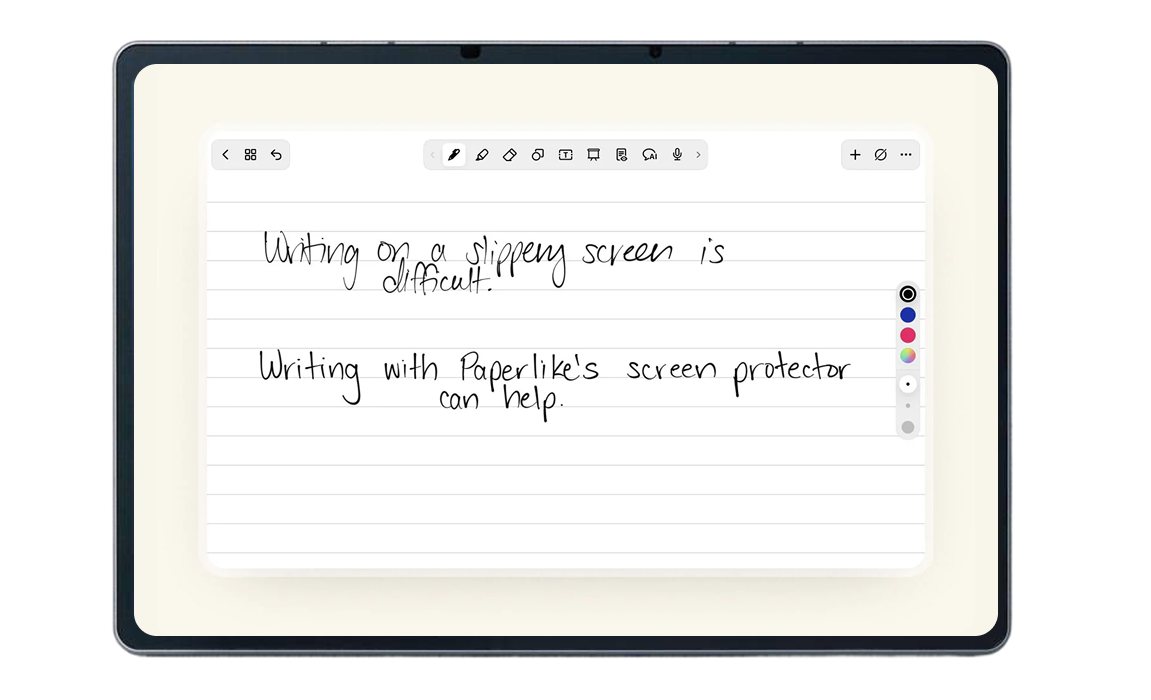 Writing on a slippery screen is
difficult.
Writing with Paperlike's screen protector
can help.